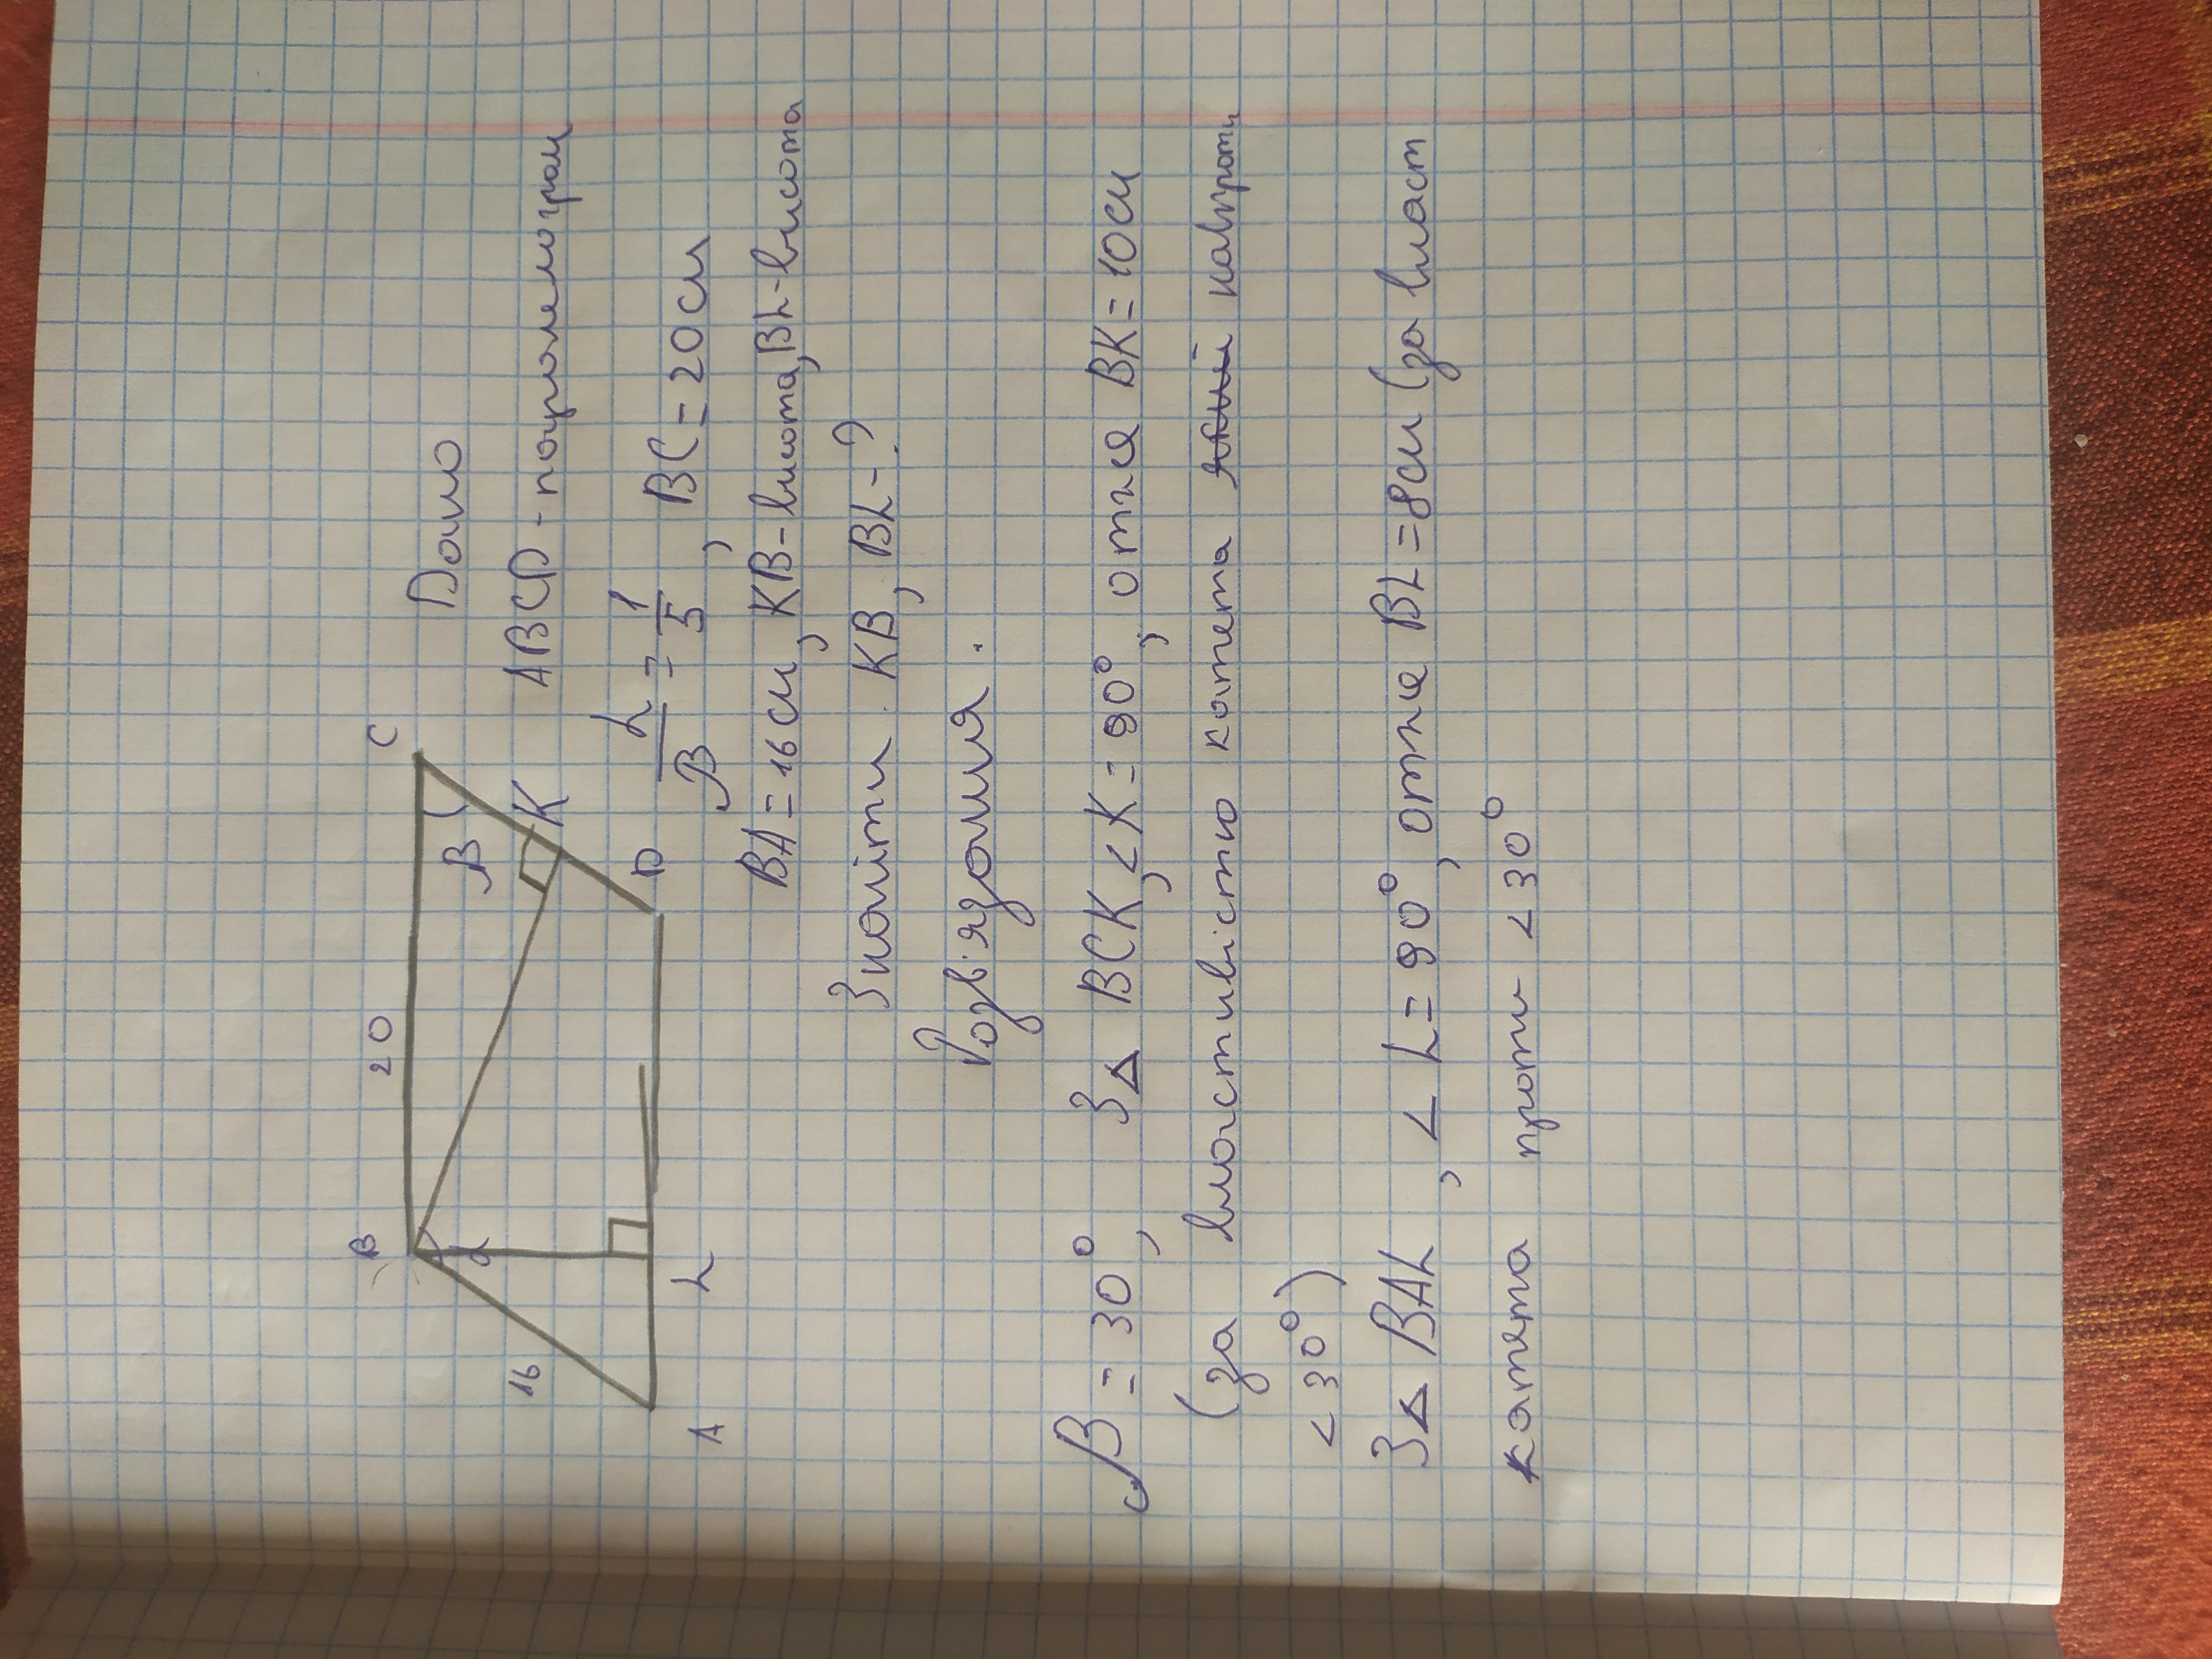 B 20 C
16 α β
K
A L D
Дано
ABCD - паралелограм
α/β = 1/5, BC = 20 см
BA = 16 см, KB - висота, BL - висота
Знайти KB, BL - ?
Розв'язання.
β = 30°, З △ BCK, <K = 90°, отже BK = 10 см
(за властивістю катета навпроти
<30°)
З △ BAL, <L = 90°, отже BL = 8 см (за власт
катета проти <30°